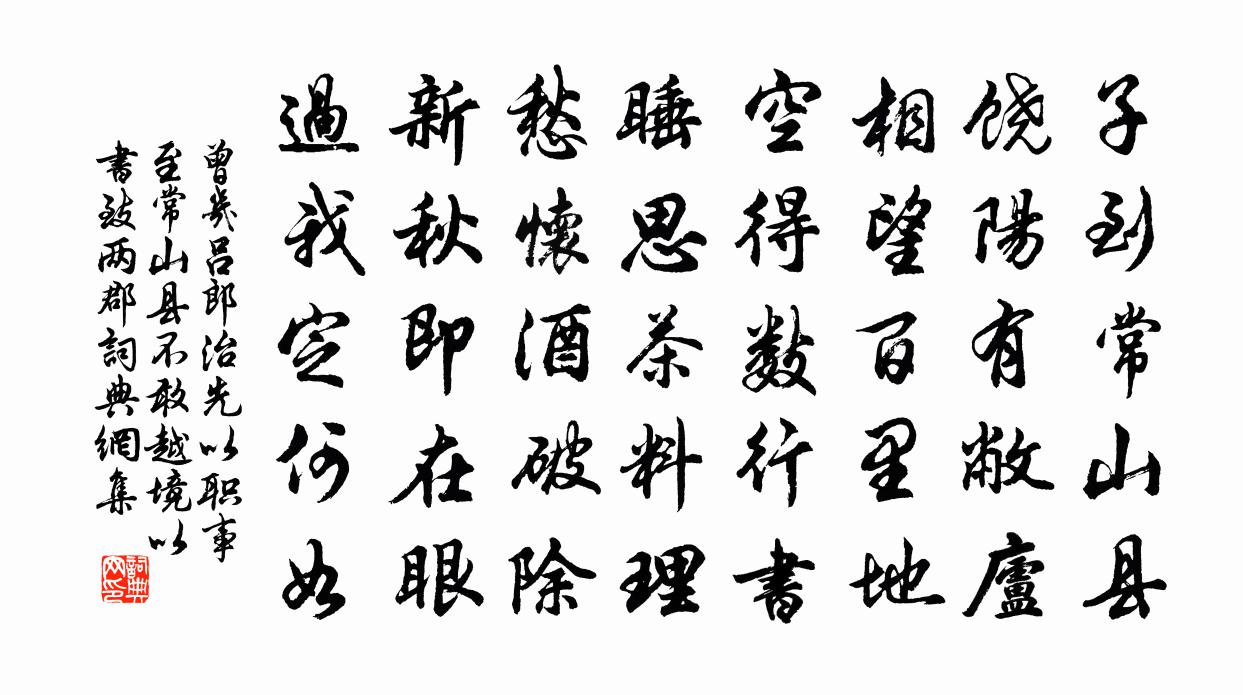 子到常山县
饶陽有敝廬
相望百里地
空得数行書
睡思茶料理
愁懷酒破除
新秋即在眼
過我定何如
曾幾吕郎治先以职事
至常山县不敢越境以
書致两郡詞典網集
詞典
网印